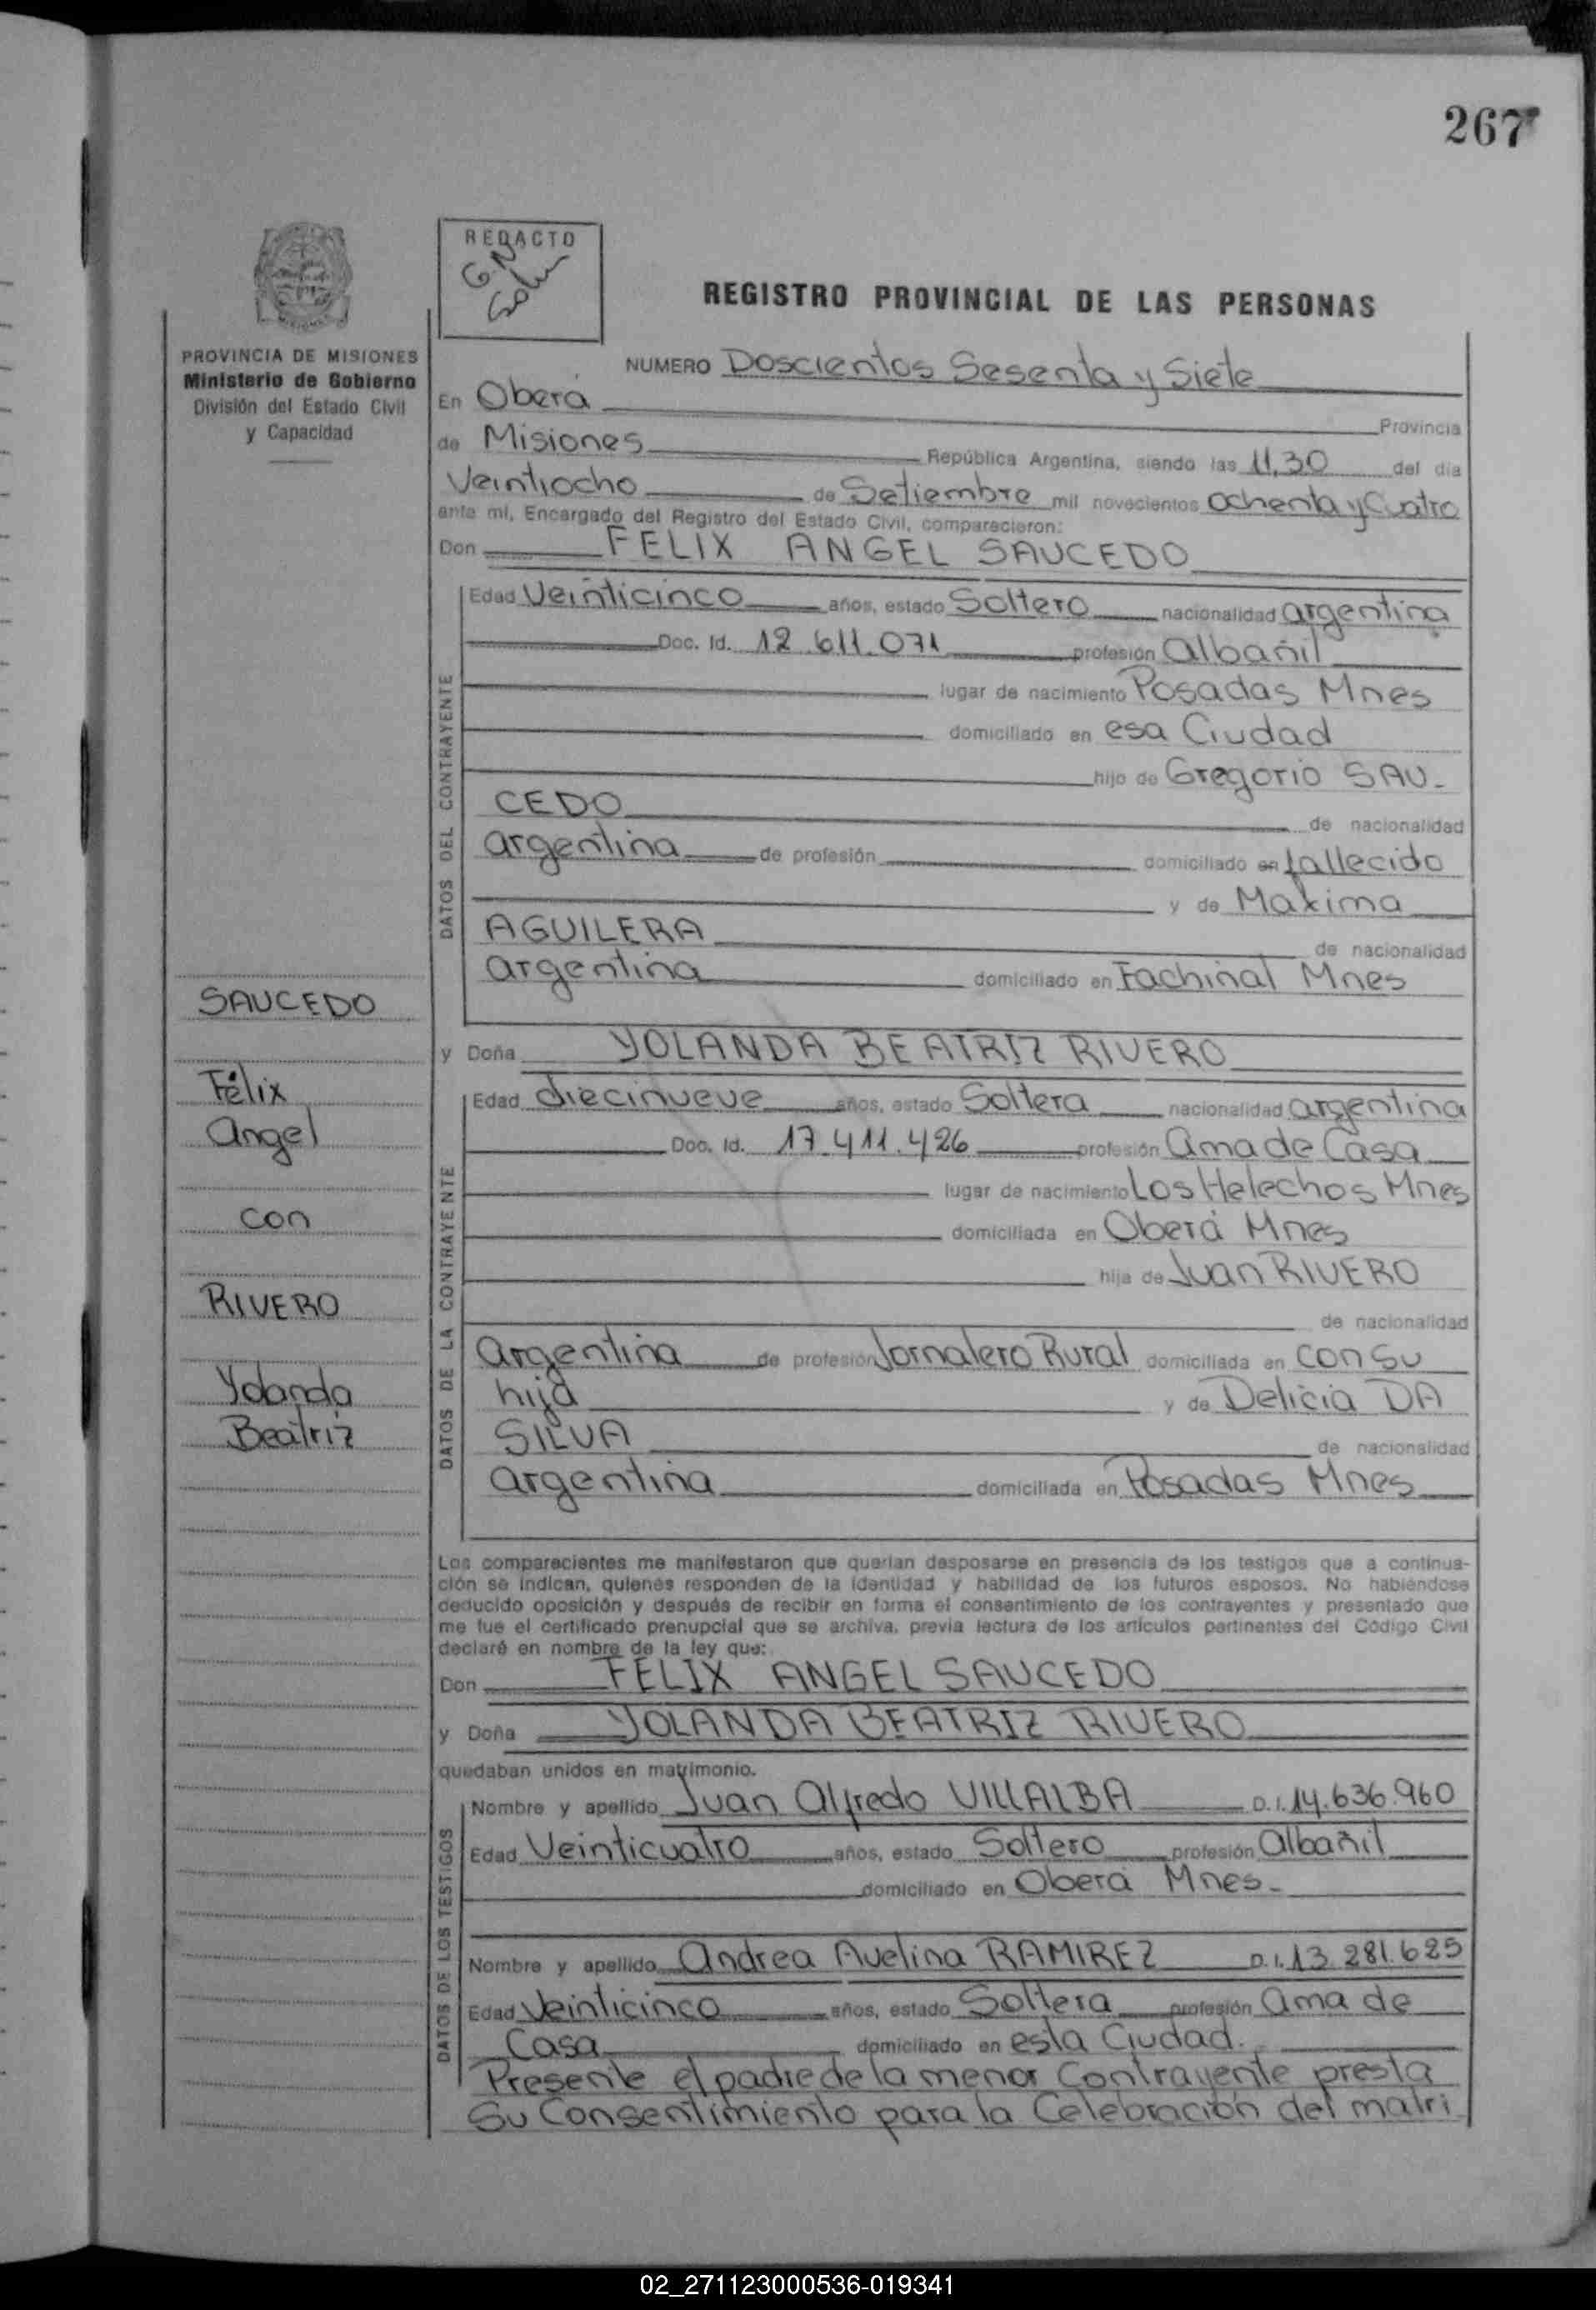 267
REDACTO
G.N
REGISTRO PROVINCIAL DE LAS PERSONAS
PROVINCIA DE MISIONES
Ministerio de Gobierno
División del Estado Civil
y Capacidad
NUMERO Doscientos Sesenta y Siete
En Oberá Provincia
de Misiones República Argentina, siendo las 11,30 del día
Veintiocho de Setiembre mil novecientos ochenta y Cuatro
ante mí, Encargado del Registro del Estado Civil, comparecieron:
Don FELIX ANGEL SAUCEDO
DATOS DEL CONTRAYENTE
Edad Veinticinco años, estado Soltero nacionalidad argentina
Doc. Id. 12.611.071 profesión albañil
lugar de nacimiento Posadas Mnes
domiciliado en esa Ciudad
hijo de Gregorio SAU-
CEDO de nacionalidad
argentina de profesión domiciliado en fallecido
y de Maxima
AGUILERA de nacionalidad
argentina domiciliado en Fachinal Mnes
SAUCEDO
Félix
Angel
con
RIVERO
Yolanda
Beatriz
y Doña YOLANDA BEATRIZ RIVERO
DATOS DE LA CONTRAYENTE
Edad diecinueve años, estado Soltera nacionalidad argentina
Doc. Id. 17.411.426 profesión ama de Casa
lugar de nacimiento Los Helechos Mnes
domiciliada en Oberá Mnes
hija de Juan RIVERO
de nacionalidad
argentina de profesión Jornalero Rural domiciliada en con su
hija y de Delicia DA
SILVA de nacionalidad
argentina domiciliada en Posadas Mnes
Los comparecientes me manifestaron que querían desposarse en presencia de los testigos que a continua-
ción se indican, quienes responden de la identidad y habilidad de los futuros esposos. No habiéndose
deducido oposición y después de recibir en forma el consentimiento de los contrayentes y presentado que
me fue el certificado prenupcial que se archiva, previa lectura de los artículos pertinentes del Código Civil
declaré en nombre de la ley que:
Don FELIX ANGEL SAUCEDO
y Doña YOLANDA BEATRIZ RIVERO
quedaban unidos en matrimonio.
DATOS DE LOS TESTIGOS
Nombre y apellido Juan Alfredo VILLALBA D.I. 14.636.960
Edad Veinticuatro años, estado Soltero profesión albañil
domiciliado en Oberá Mnes-
Nombre y apellido andrea Avelina RAMIREZ D.I. 13.281.625
Edad Veinticinco años, estado Soltera profesión ama de
Casa domiciliado en esta Ciudad.
Presente el padre de la menor Contrayente presta
su Consentimiento para la Celebración del matri
02_271123000536-019341